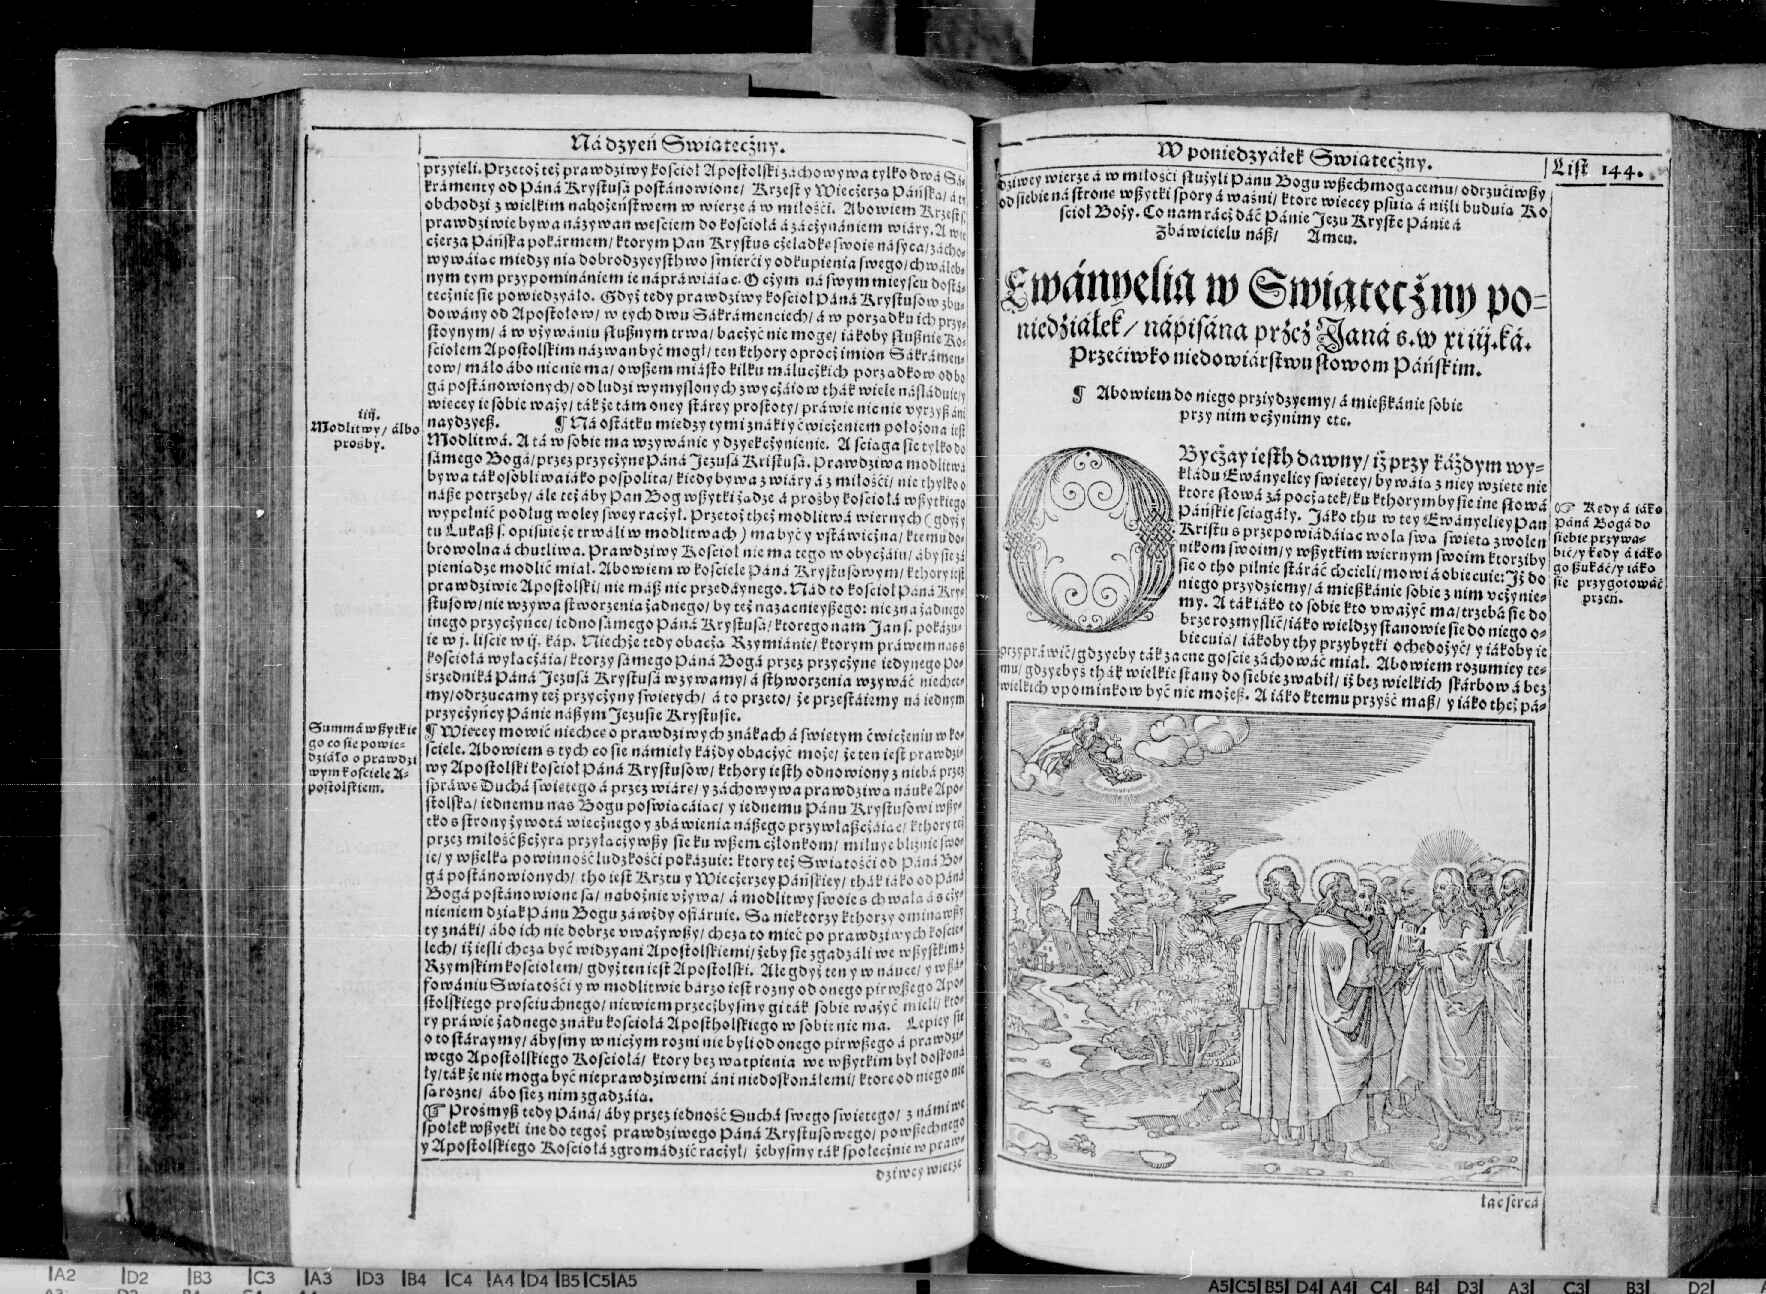 Ná dzyeń Swiątecżny.
przyięli. Przetoż też prawdziwy kościoł Apostolski záchowywa tylko dwá Sá-
krámenty od Páná Krystusá postánowione/ Krzest y Wieczerza Páńska/ á te
obchodzi z wielkim nabożeństwem w wierze á w miłości. Abowiem Krzest s.
prawdziwie bywa názywan weściem do kościołá á zácżynániem wiáry. A wie
cżerza Páńska pokármem/ ktorym Pan Krystus cżeladkę swoię násyca/ zácho-
wywáiąc miedzy nią dobrodzyeysthwo śmierći y odkupienia swego/ chwáleb-
nym tym przypominániem ie nápráwiáiąc. O cżym ná swym mieyscu dostá-
tecżnie sie powiedzyáło. Gdyż tedy prawdziwy kościoł Páná Krystusow zbu-
dowány od Apostołow/ w tych dwu Sákrámenciech/ á w porządku ich przy-
stoynym/ á w vżywániu słusznym trwa/ bacżyć nie mogę/ iákoby słusznie Ko-
ściołem Apostolskim názwan być mogł/ ten kthory oprocż imion Sákrámen-
tow/ máło ábo nic nie ma/ owszem miásto kilku máluczkich porządkow od bo
gá postánowionych/ od ludzi wymyslonych zwycżáiow thák wiele násláduie/ y
więcey ie sobie waży/ ták że tám oney stárey prostoty/ práwie nic nie vyrzysz áni
naydzyesz. ¶ Ná ostátku miedzy tymi znáki y ćwicżeniem położona iest
Modlitwá. A tá w sobie ma wzywánie y dzyękcżynienie. A ściąga się tylko do
sámego Bogá/ przez przycżynę Páná Jezusá Kristusá. Prawdziwa modlitwá
bywa ták osobliwa iáko pospolita/ kiedy bywa z wiáry á z miłości/ nie thylko o
násze potrzeby/ ále też áby Pan Bog wszytki żądze á prosby kościołá wszytkiego
wypełnić podług woley swey racżył. Przetoż theż modlitwá wiernych (gdyż y
tu Lukasz s. opisuie że trwáli w modlitwach) ma być y vstáwicżna/ k temu do-
browolna á chutliwa. Prawdziwy Kościoł nie ma tego w obycżáiu/ áby sie zá
pieniądze modlić miał. Abowiem w kościele Páná Krystusowym/ kthory iest
prawdziwie Apostolski/ nie mász nic przedáynego. Nád to kościoł Páná Kry-
stusow/ nie wzywa stworzenia żadnego/ by też nazacnieyszego: nie zna żadnego
inego przycżyńce/ iedno sámego Páná Krystusá/ ktorego nam Jan s. pokázu-
ie w j. liście w ij. káp. Niechże tedy obacżą Rzymiánie/ ktorym práwem nas s
kościołá wyłącżáią/ ktorzy sámego Páná Bogá przez przycżynę iedynego Po-
śrzedniká Páná Jezusá Krystusá wzywamy/ á sthworzenia wzywáć niechce-
my/ odrzucamy też przycżyny świętych/ á to przeto/ że przestáiemy ná iednym
przycżyńcy Pánie nászym Jezusie Krystusie.
¶ Więcey mowić niechcę o prawdziwych znákach á świętym ćwicżeniu w ko-
ściele. Abowiem s tych co sie námieły káżdy obacżyć może/ że ten iest prawdzi-
wy Apostolski kościoł Páná Krystusow/ kthory iesth odnowiony z niebá przez
spráwę Duchá świętego á przez wiárę/ y záchowywa prawdziwą náukę Apo-
stolską/ iednemu nas Bogu poświącáiąc/ y iednemu Pánu Krystusowi wszy-
tko s strony żywotá wiecżnego y zbáwienia nászego przywłaszcżáiąc/ kthory też
przez miłość szcżyrą przyłącżywszy się ku wszem członkom/ miłuye bliźnie swo-
ie/ y wszelką powinność ludzkości pokázuie: ktory też Swiątości od Páná Bo-
gá postánowionych/ tho iest Krztu y Wiecżerzey Páńskiey/ thák iáko od Páná
Bogá postánowione są/ nabożnie vżywa/ á modlitwy swoie s chwałą á s cży-
nieniem dziák Pánu Bogu záwżdy ofiáruie. Są niektorzy kthorzy ominąwszy
ty znáki/ ábo ich nie dobrze vważywszy/ chcą to mieć po prawdziwych kościo-
łech/ iż iesli chcą być widzyani Apostolskiemi/ żeby się zgadzáli we wszystkim z
Rzymskim kościołem/ gdyż ten iest Apostolski. Ale gdyż ten y w náuce/ y w szá-
fowániu Swiątości y w modlitwie bárzo iest rozny od onego pirwszego Apo-
stolskiego prosciuchnego/ niewiem przecżbysmy gi ták sobie ważyć mieli/ kto-
ry práwie żadnego znáku kościołá Apostholskiego w sobie nie ma. Lepiey sie
o to stáraymy/ ábysmy w nicżym rozni nie byli od onego pirwszego á prawdzi-
wego Apostolskiego Kościołá/ ktory bez wątpienia we wszytkim był doskoná
ły/ ták że nie mogą być nieprawdziwemi áni niedoskonáłemi/ ktore od niego nie
są rozne/ ábo się z nim zgadzáią.
☞ Prośmysz tedy Páná/ áby przez iedność Duchá swego świętego/ z námi we
społek wszytki ine do tegoż prawdziwego Páná Krystusowego/ powszechnego
y Apostolskiego Kościołá zgromádzić racżył/ żebysmy ták społecżnie w praw-
dziwey wierze
iiij.
Modlitwy/ álbo
prosby.
Summá wszytkie
go co się powie-
dziáło o prawdzi
wym kościele A-
postolskiem.
W poniedzyáłek Swiątecżny.
List 144.
dziwey wierze á w miłości służyli Pánu Bogu wszechmogącemu/ odrzuciwszy
od siebie ná stronę wszytki spory á waśni/ ktore więcey psuią á niżli buduią Ko
ścioł Boży. Co nam rácż dáć Pánie Jezu Kryste Pánie á
Zbáwicielu nász/ Amen.
Ewányelia w Swiątecżny po-
niedźiáłek/ nápisána przeż Janá s. w xiiij. ká.
Przećiwko niedowiárstwu słowom Páńskim.
¶ Abowiem do niego przyidzyemy/ á mieszkánie sobie
przy nim vcżynimy etc.
OBycżay iesth dawny/ iż przy káżdym wy-
kłádu Ewányeliey świętey/ bywáią z niey wzięte nie
ktore słowá zá pocżątek/ ku kthorymby się ine słowá
Páńskie ściągáły. Jáko thu w tey Ewányeliey Pan
Kristus przepowiádáiąc wolą swą świętą zwolen
nikom swoim/ y wszytkim wiernym swoim ktorziby
się o tho pilnie stáráć chcieli/ mowi á obiecuie: Iż do
niego przydziemy/ á mieszkánie sobie z nim vcżynie-
my. A ták iáko to sobie kto vważyć ma/ trzebá się do
brze rozmyslić/ iáko wieldzy stanowie się do niego o-
biecuią/ iákoby thy przybytki ochędożyć/ y iákoby ie
przypráwić/ gdzyeby ták zacne goście záchowáć miał. Abowiem rozumiey te-
mu/ gdzyebyś thák wielkie stany do siebie zwabił/ iż bez wielkich skárbow á bez
wielkich vpominkow być nie możesz. A iáko k temu przyść masz/ y iáko theż pá-
☞ Kedy á iáko
Páná Bogá do
siebie przywa-
bić/ y kedy á iáko
go szukáć/ y iáko
się przygotowáć
przen.
łac sercá
A2 D2 B3 C3 A3 D3 B4 C4 A4 D4 B5 C5 A5
A5 C5 B5 D4 A4 C4 B4 D3 A3 C3 B3 D2